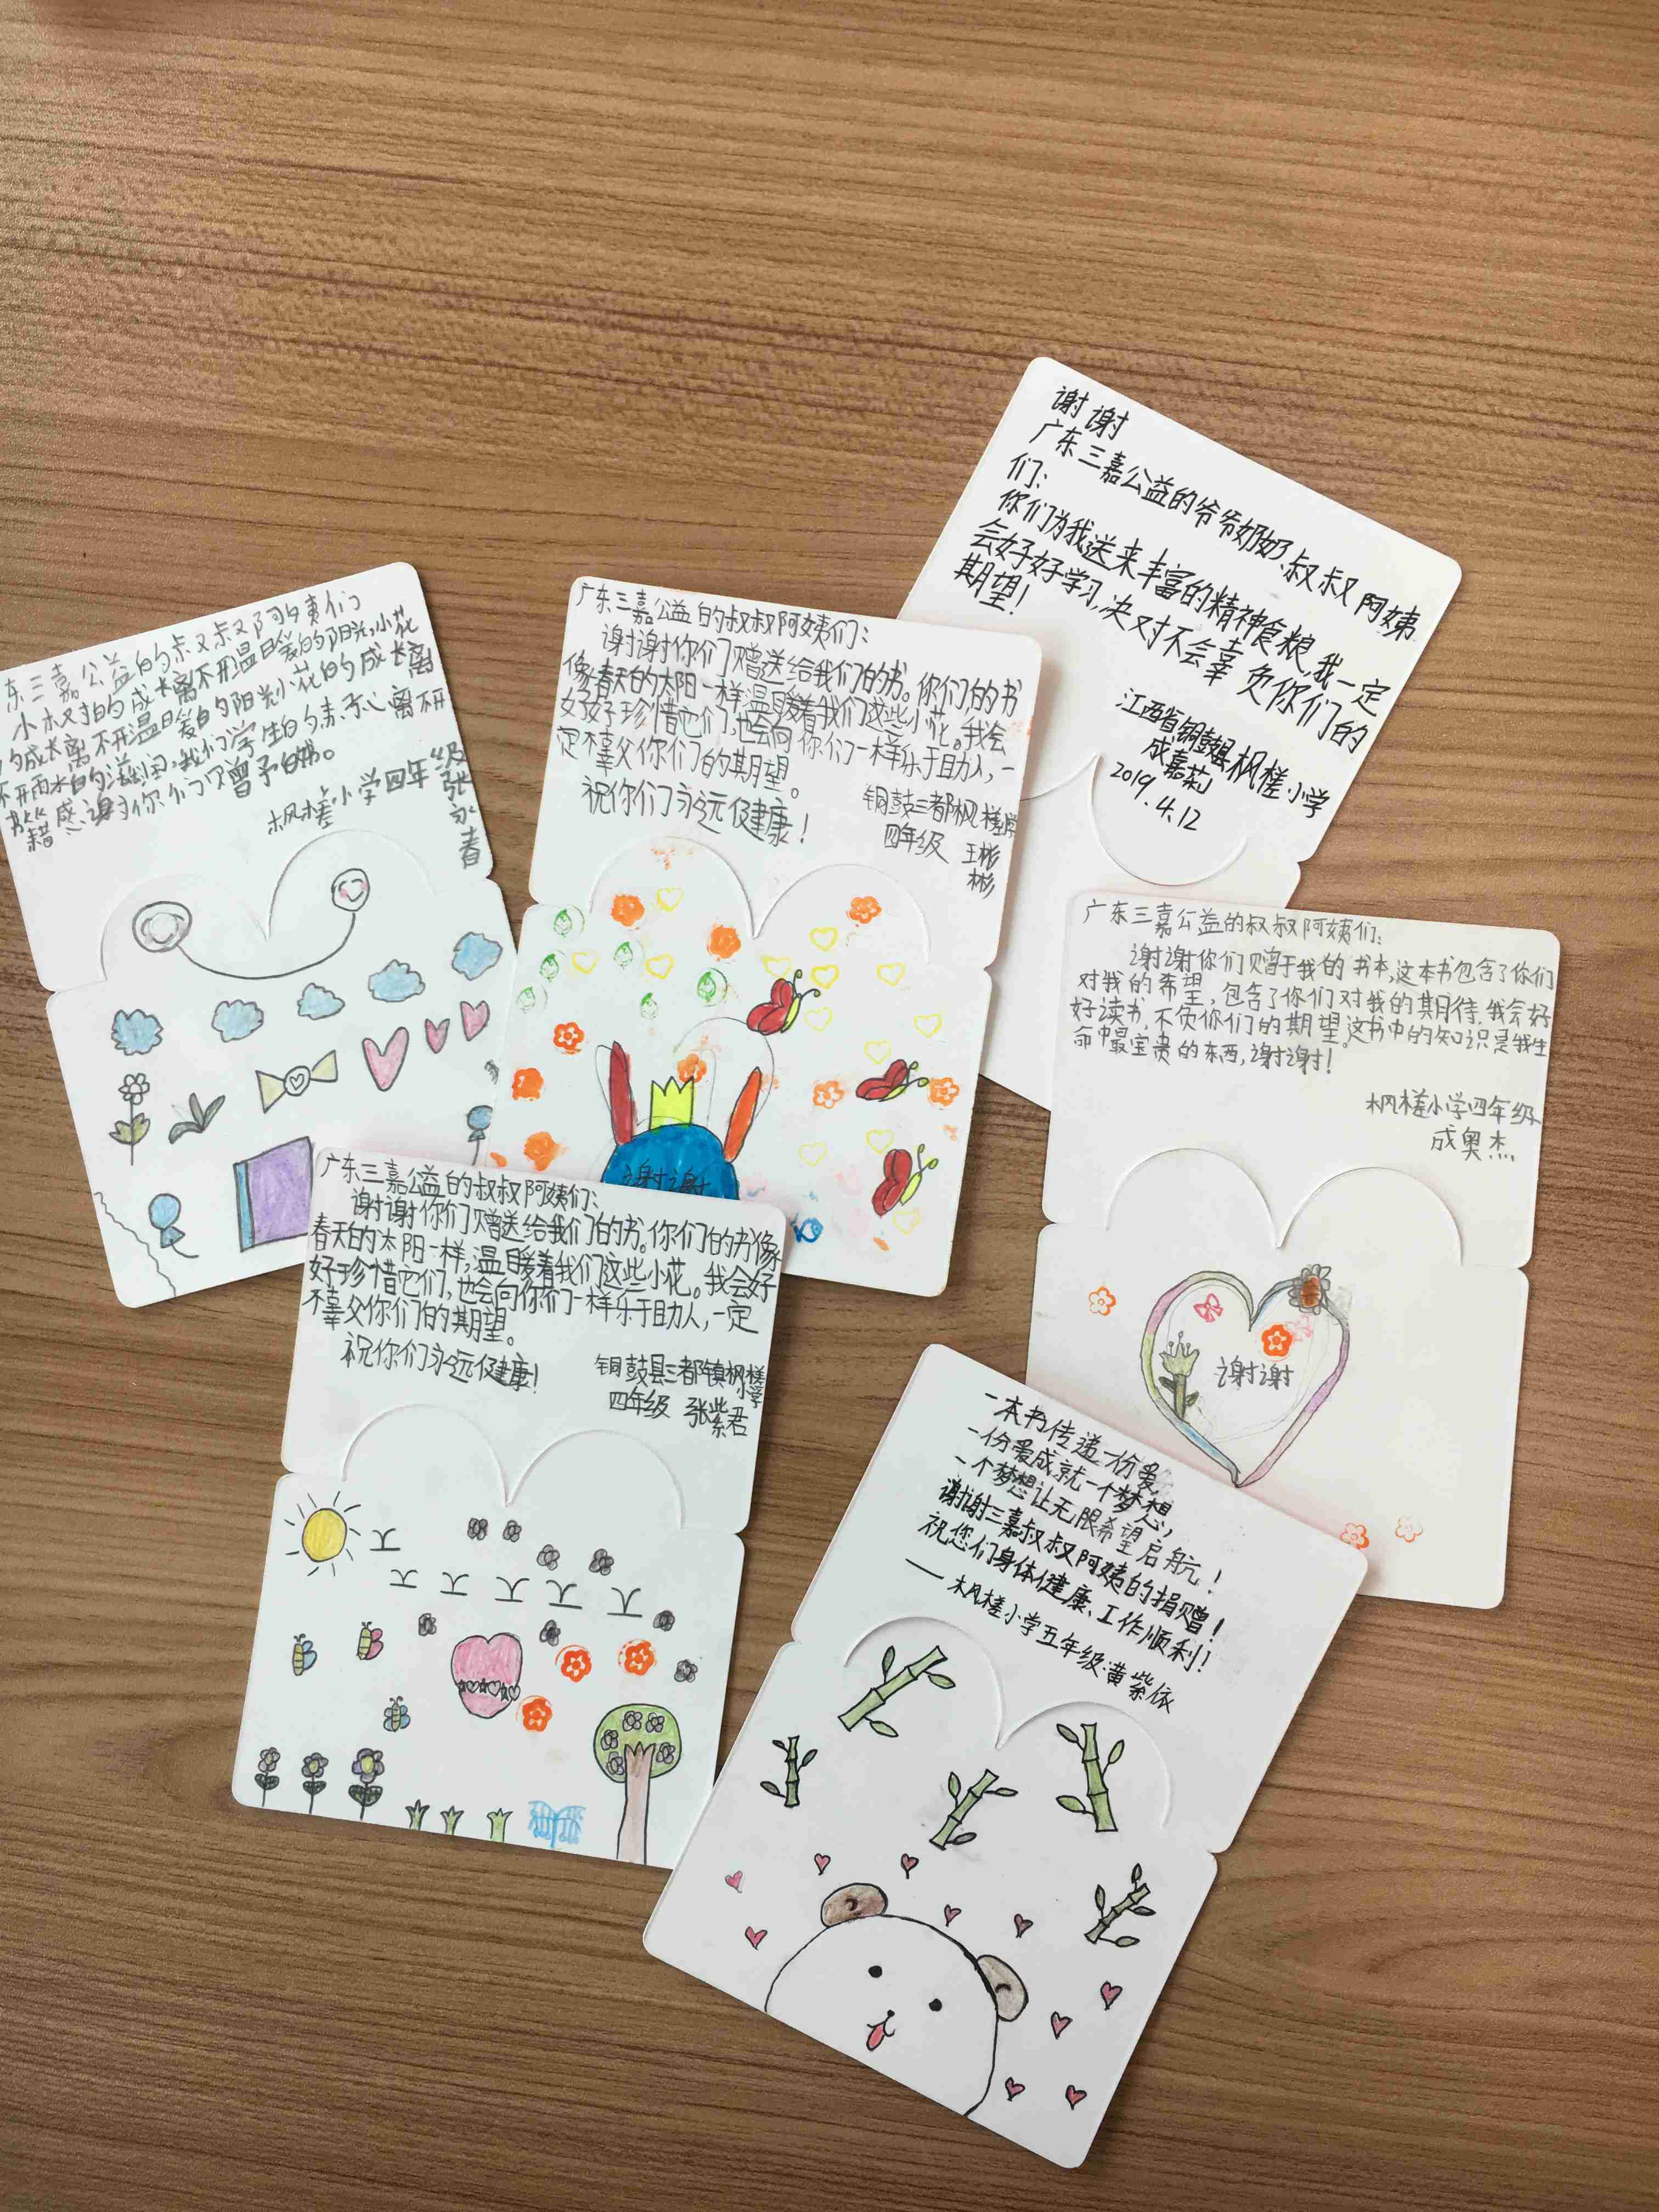 谢谢
广东三嘉公益的爷爷奶奶、叔叔阿姨
们:
你们为我送来丰富的精神食粮,我一定
会好好学习,决对不会辜负你们的
期望!
江西省铜鼓县枫槎小学
成嘉莉
2019.4.12
东三嘉公益的叔叔阿姨们
小树的成长离不开温暖的阳光,小花
的成长离不开温暖的阳光小花的成长离
不开雨水的滋润,我们学生的离不开
书籍感谢你们贝曾予的书。
枫槎小学四年级张
永春
广东三嘉公益的叔叔阿姨们:
谢谢你们赠送给我们的书。你们的书
像春天的太阳一样,温暖着我们这些小花。我会
好好珍惜它们,也会向你们一样乐于助人,一
定不辜父你们的期望。
祝你们永远健康!
铜鼓三都枫槎小学
四年级 王彬
彬
谢谢
广东三嘉公益的叔叔阿姨们:
谢谢你们赠于我的书本,这本书包含了你们
对我的希望,包含了你们对我的期待.我会好
好读书,不负你们的期望。这书中的知识是我生
命中最宝贵的东西,谢谢!
枫槎小学四年级
成奥杰
谢谢
广东三嘉公益的叔叔阿姨们:
谢谢你们赠送给我们的书。你们的书像
春天的太阳一样,温暖着我们这些小花。我会好
好珍惜它们,也会向你们一样乐于助人,一定
不辜父你们的期望。
祝你们永远健康!
铜鼓县三都镇枫槎
小学
四年级 张紫君
一本书传递一份爱,
一份爱成就一个梦想,
一个梦想让无限希望启航!
谢谢三嘉叔叔阿姨的捐赠!
祝您们身体健康、工作顺利!
——枫槎小学五年级:黄紫依